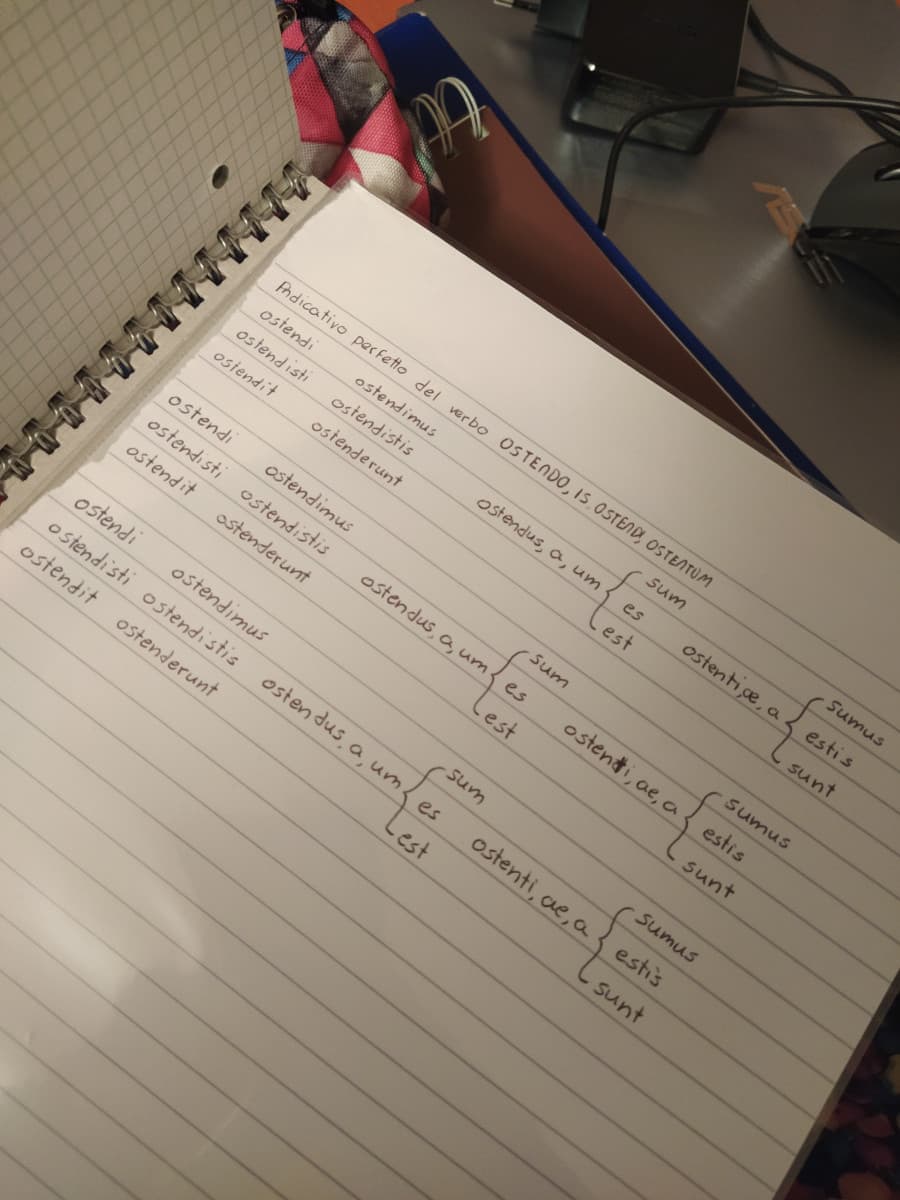 Indicativo perfetto del verbo OSTENDO, IS OSTENDI, OSTENTUM
ostendi ostendimus sum sumus
ostendisti ostendistis ostendus, a, um { es ostenti, ae, a { estis
ostendit ostenderunt est sunt
ostendi ostendimus sum sumus
ostendisti ostendistis ostendus, a, um { es ostenti, ae, a { estis
ostendit ostenderunt est sunt
ostendi ostendimus sum sumus
ostendisti ostendistis ostendus, a, um { es ostenti, ae, a { estis
ostendit ostenderunt est sunt